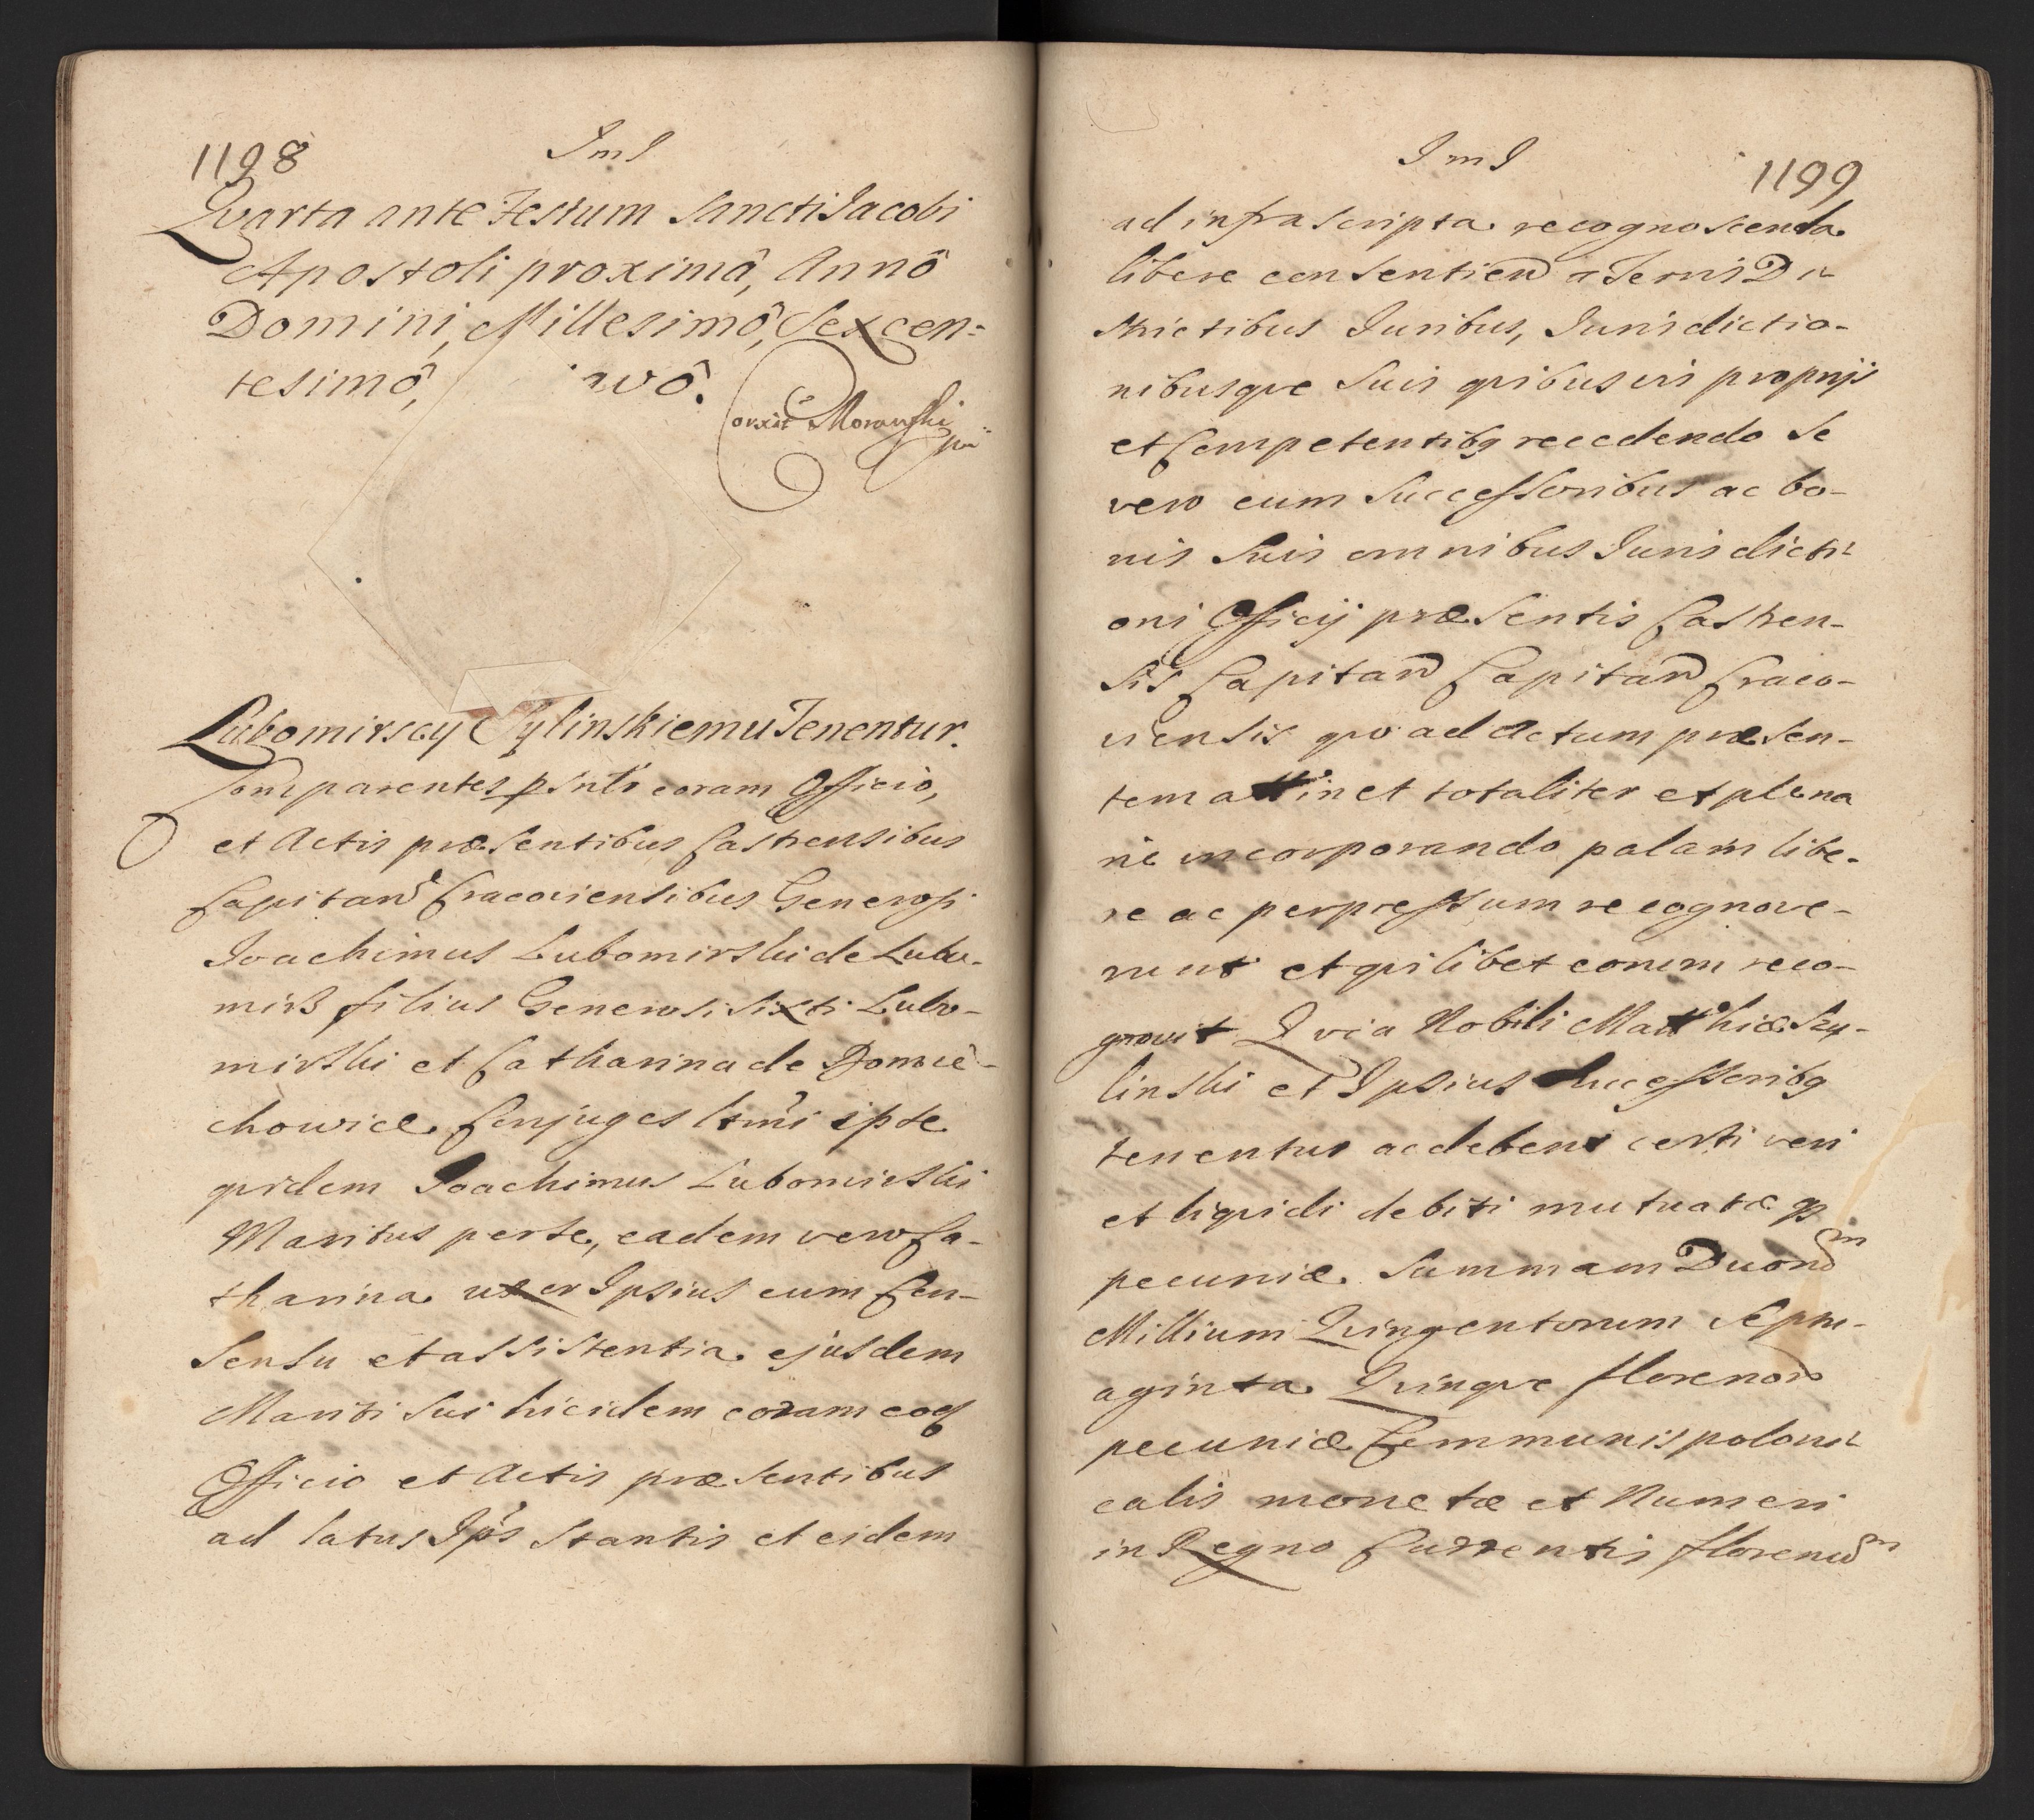 1198
ImI
Qvarta ante Festum Sancti Iacobi
Apostoli proximâ, Annô
Domini, Millesimô, Sexcen=
tesimô,
Morawski
Lubomirscy Sylinskiemu Tenentur.
Comparentes psntr coram Officio,
et Actis præsentibus Castrensibus
Capitan Cracoviensibus Generosi
Ioachimus Lubomirski de Lubo-
mirz filius Generosi Sixti Lubo-
mirski et Catharina de
chowice Conjuges ipse
qvidem Ioachimus Lubomirski
Maritus per se, eadem vero Ca-
tharina uxor Ipsius cum Con-
sensu et assistentia ejusdem
Mariti sui hicidem coram eoq
Officio et Actis præsentibus
ad latus Ips stantis et eidem
ImI
1199
ad infrascripta recognoscenda
libere consentien a Terris Di-
strictibus Iuribus, Iurisdictio-
nibusqve suis qvibusvis proprijs
et Competentibq recedendo se
vero cum Successoribus ac bo-
nis suis omnibus Iurisdicti-
oni Officij præsentis Castren-
sis Capitan Capitan Craco-
viensis qvo ad Actum præsen-
tem attinet totaliter et plena
rie incorporando palam libe-
re ac per expressum recognove-
runt et qvilibet eorum reco-
gnovit Qvia Nobili Matthiæ Szy-
linski et Ipsius Successoribq
tenentur ac debent certi veri
et liqvidi debiti mutuatæ qz
pecuniæ Summam Duorum
Millium Qvingentorum Septu-
aginta Qvinqve floreno
pecuniæ Communis poloni-
calis monetæ et Numeri
in Regno Currentis florenum